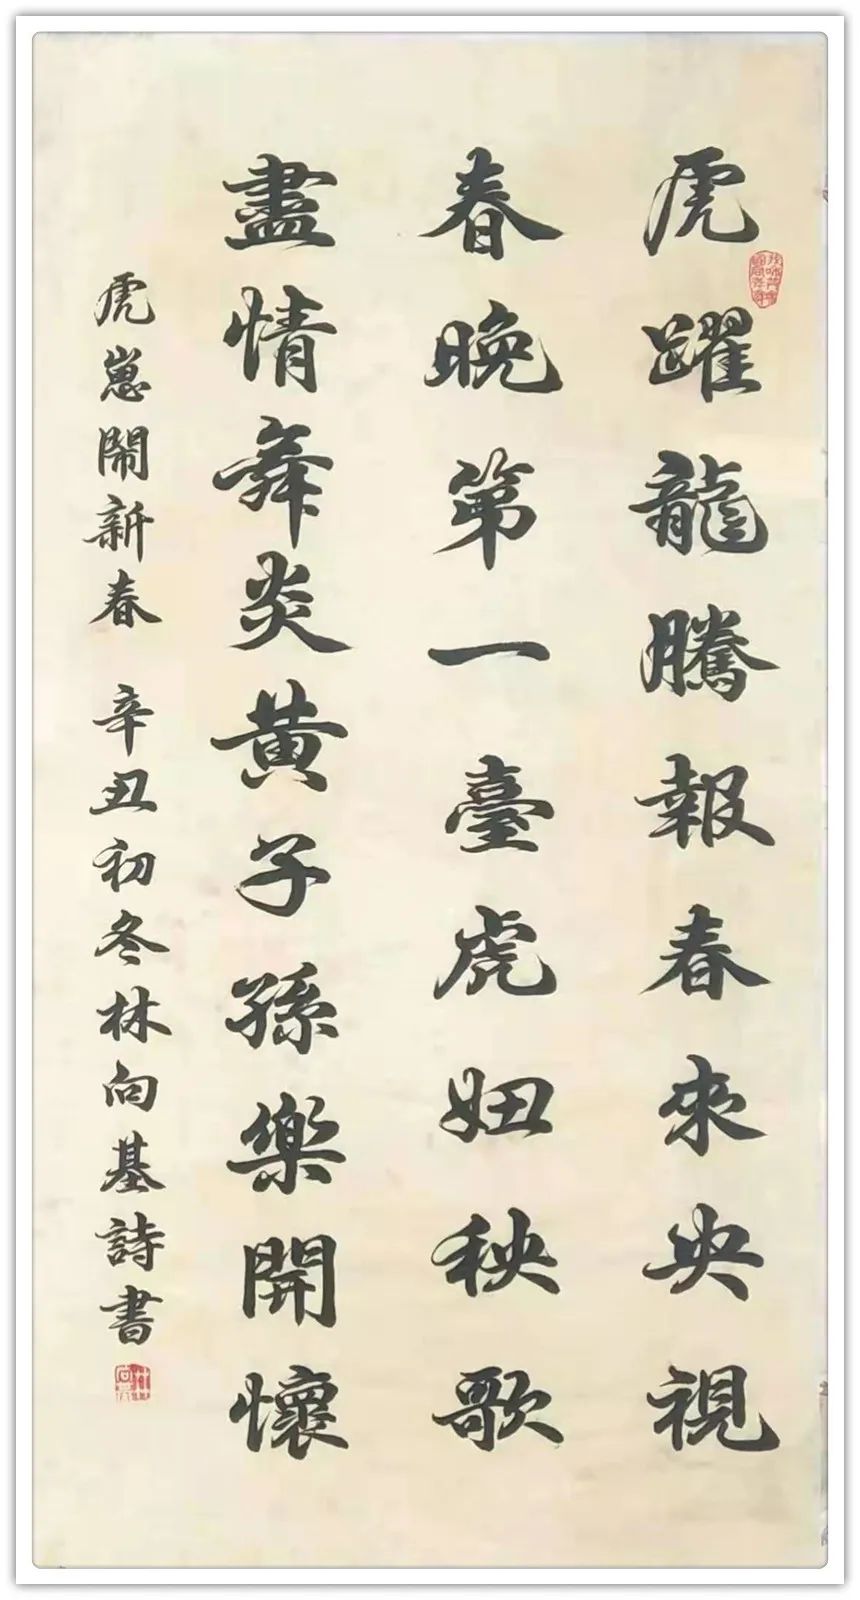 虎躍龍騰報春來央視
春晚第一臺虎妞秧歌
盡情舞炎黄子孫樂開懷
虎崽鬧新春 辛丑初冬林向基詩書